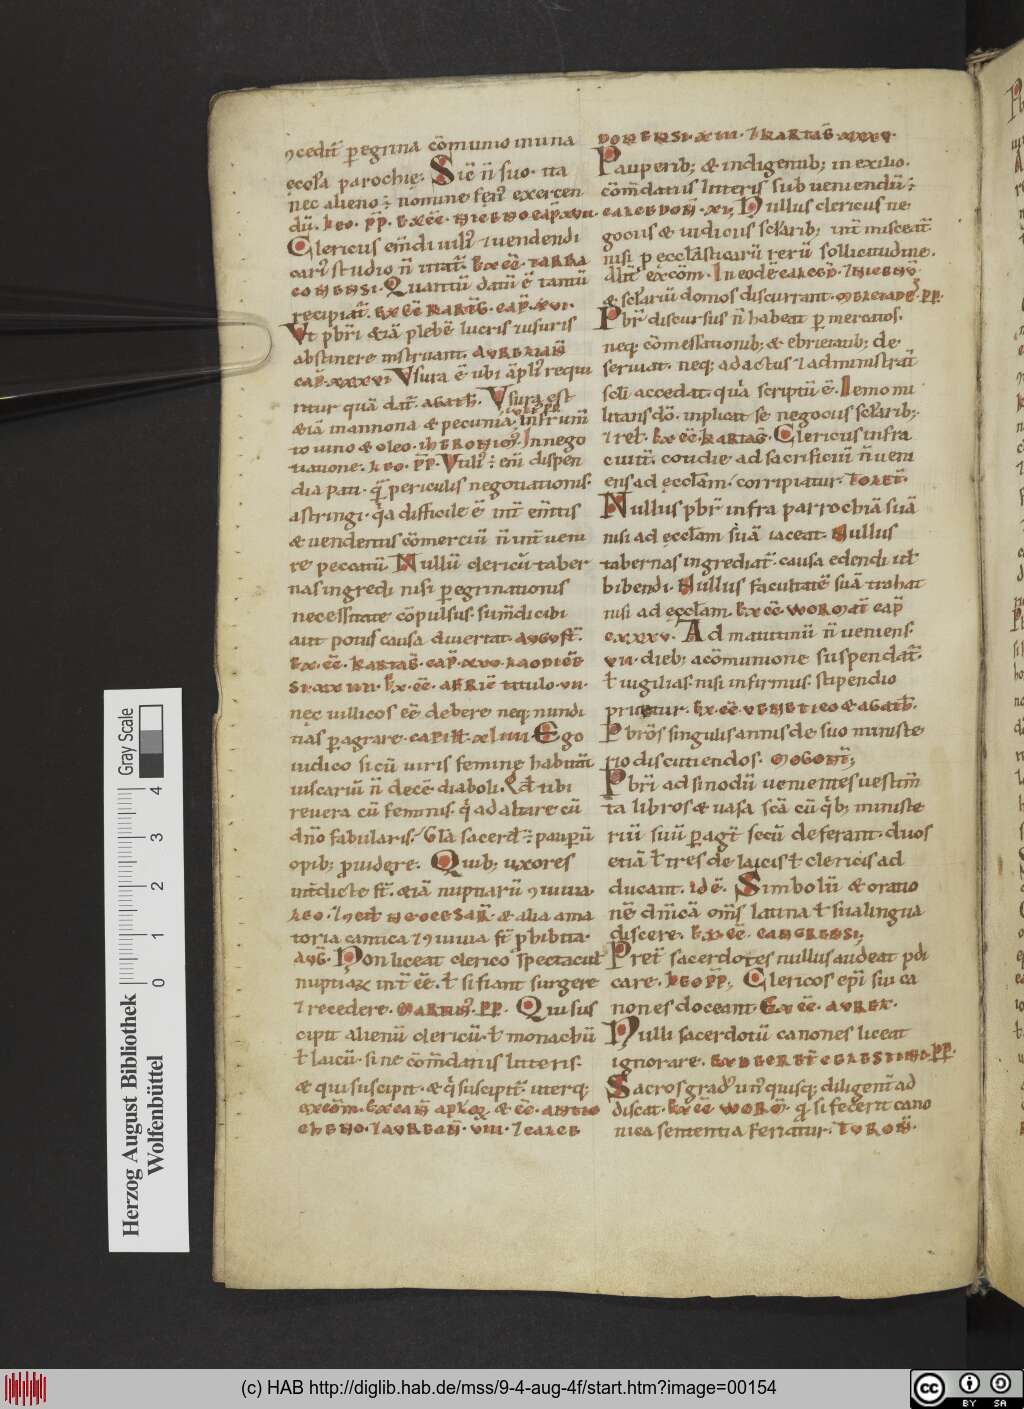 ꝯcedit̄ peregrina cōmunio in una
ęcclā parochię; Sic n̄ suo ita
nec alieno nomine fen exercen
dū. LEO PP. EX CC̄. NICENO CAP̄. XVII.
Clericus em̄di vili ⁊ vendendi
cari studio n̄ utat̄. EX CC̄. TARRA
CONENSI. Quantū datū ē tantū
recipiat̄. EX CC̄ KARTAḠ. CAP̄. XVI.
Vt pbr̄i &iā plebē lucris ⁊ usuris
abstinere instruant. AVRELIAN̄
CAP̄. XXXVI. Vsura ē ubi āpli requi
ritur quā dat̄. AGATH̄. Vsura est
&iā in annona & pecunia, in frum̄
to vino & oleo. IHERONIM̄. In nego
tiatione. LEO. PP̄. Vtili em̄ dispen
dia pati. q̄ periculis negotiationis
astringi. q̄a difficile ē int̄ em̄tis
& vendentis cōmerciū n̄ int̄ veni
re peccatū. Nullū clericū taber
nas ingredi nisi peregrinationis
necessitate cōpulsus. sum̄di cibi
aut potus causa divertat. AVGVST̄.
EX. CC̄. KARTAG̅. CAP̄. XVI. LAODICĒ
SI. XXIIII. EX. CC̄. AFRIĒ titulo. VII.
nęc villicos ēē debere neq; nundi
nas peragrare. CAPITL̄. XLIIII. Ego
iudico si cū viris femine habitān
viscariū n̄ decē diaboli. Qd̄ tibi
revera cū feminis. q̄ ad altare cū
dn̄o fabularis. Gl̄a sacerd̄. paupū
opib; p̄videre. Quib; uxores
int̄dicte st̄. &iā nuptiarū ꝯvivia.
LEO. ⁊ ꝯcil̄ NEOCESAR̄. & alia ama
toria cantica ⁊ ꝯvivia st̄ p̄hibita.
AVG̅. Non liceat clerico spectacul̄
nuptiaꝝ int̄ ēē. ł si fiant surgere
⁊ recedere. MARTIN̄. PP. Qui sus
cipit alienū clericū. ł monachū
ł laicū. sine cōm̄datiis litteris.
& qui suscipit. & q̄ suscipit̄. uterq;
excōm. EX CAN̄ APL̄OꝜ. & CC̄. ANTIO
CHENO. ⁊ AVRELAN̄. VIII. ⁊ CALCE
DONENSI. XIII. ⁊ KARTAG̅. XXXV.
Pauperib; & indigentib; in exilio.
cōm̄datiis litteris subveniendū;
CALCEDON̄. XI; Nullus clericus ne
gociis & iudiciis sclarib; int̄ misceat̄.
nisi p ecclasticarū rerū sollicitudine.
Alit̄ excōm. In eodē CALCED̄. ⁊ NICEN̄
& sclariū domos discurrant. MELCIADĒ. PP.
Pbr̄i discursus n̄ habeat p mercatos.
neq; cōmessationib; & ebrietatib; de
serviat. neq; ad actus ⁊ administrat̄
scli accedat. quā scriptū ē. Nemo mi
litans dō. inplicat se negociis sclarib;.
⁊ rel̄. EX CC̄ KARTAG̅. Clericus infra
civit̄. cotidie ad sacrificiū n̄ veni
ens ad ęccl̄am. corripiatur. TOLET̄.
Nullus pbr̄ infra parrochiā suā
nisi ad ęccl̄am suā iaceat. Nullus
tabernas ingrediat̄. causa edendi ul̄
bibendi. Nullus facultatē suā trahat
nisi ad ęccl̄am. EX CC̄ WORMAT̄ CAP̄
CXXXV. Ad matutinū n̄ veniens.
VII. dieb; acōmunione suspendat̄.
ł vigilias nisi infirmus. stipendio
privetur. EX. CC̄ VENETICO & AGATH̄.
Pbr̄os singulis annis de suo ministe
rio discutiendos. MOGONT̄;
Pbr̄i ad sinodū venientes vestim̄
ta libros & vasa scā cū q̄b; ministe
riū suū pagit̄ secū deferant. duos
etiā ł tres de laicis ł clericis ad
ducant. IDĒ. Simbolū & oratio
nē dn̄icā om̄s latina ł sua lingua
discere. EX CC̄. CANGRENSI;
Pret̄ sacerdotes nullus audeat p̄di
care. LEO PP; Clericos ep̄i sui ca
nones doceant. EX CC̄. AVREL̄.
Nulli sacerdotū canones liceat
ignorare. EX DECRET̄ CELESTINI. PP.
Sacros gradꝰ un̄quisq; diligent̄ ad
discat. EX CC̄ WORM̄. q̄ si fecerit cano
nica sententia feriatur. TVRON̄.
Gray Scale
0 1 2 3 4
Herzog August Bibliothek
Wolfenbüttel
(c) HAB http://diglib.hab.de/mss/9-4-aug-4f/start.htm?image=00154
cc BY SA